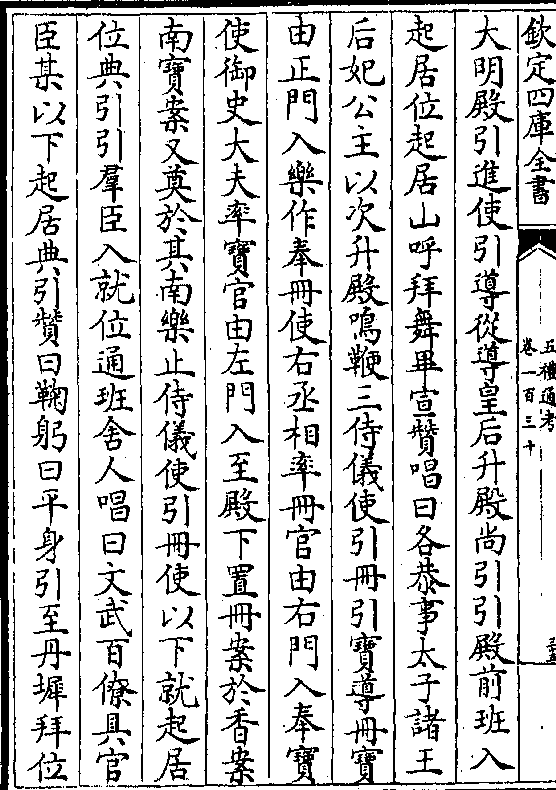 欽定四庫全書
五禮通考
卷一百三十
大明殿引進使引導從導皇后升殿尚引引殿前班入
起居位起居山呼拜舞畢宣贊唱曰各恭事太子諸王
后妃公主以次升殿鳴鞭三侍儀使引冊引寶導冊寶
由正門入樂作奉冊使右丞相率冊官由右門入奉寶
使御史大夫率寶官由左門入至殿下置冊案於香案
南寶案又奠於其南樂止侍儀使引冊使以下就起居
位典引引羣臣入就位通班舍人唱曰文武百僚具官
臣某以下起居典引贊曰鞠躬曰平身引至丹墀拜位